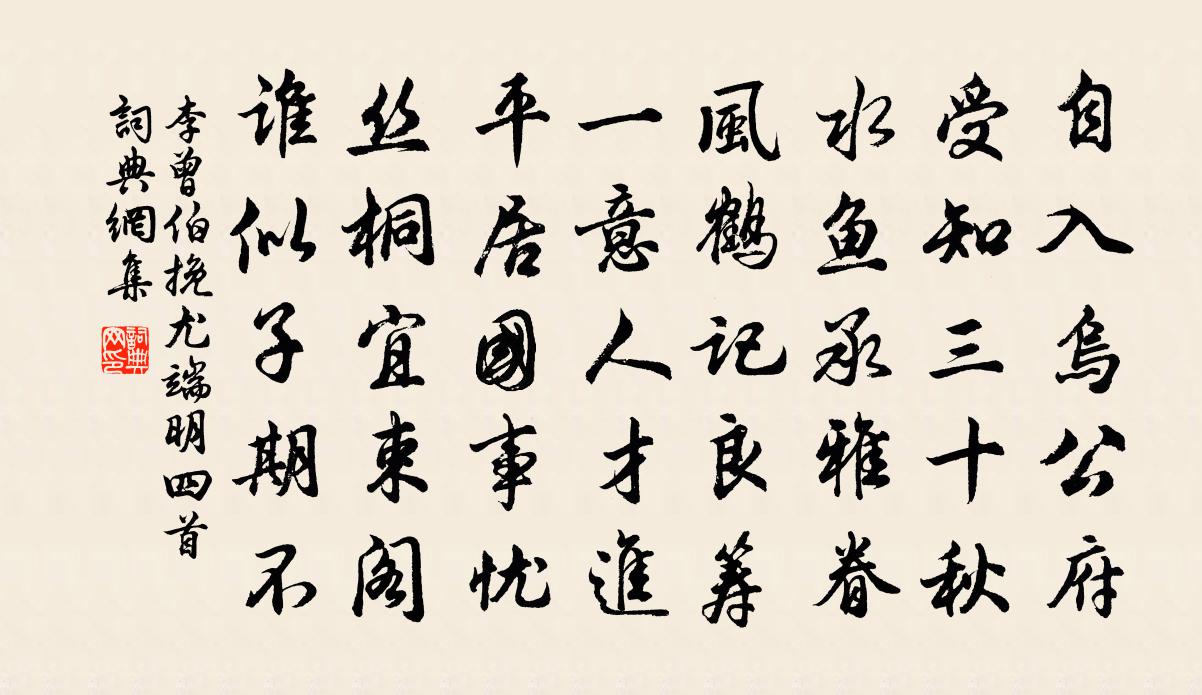 自入烏公府
受知三十秋
水鱼承雅眷
風鶴記良筹
一意人才進
平居國事忧
丝桐宜東阁
谁似子期不
李曾伯挽尤端明四首
詞典網集
詞典网印